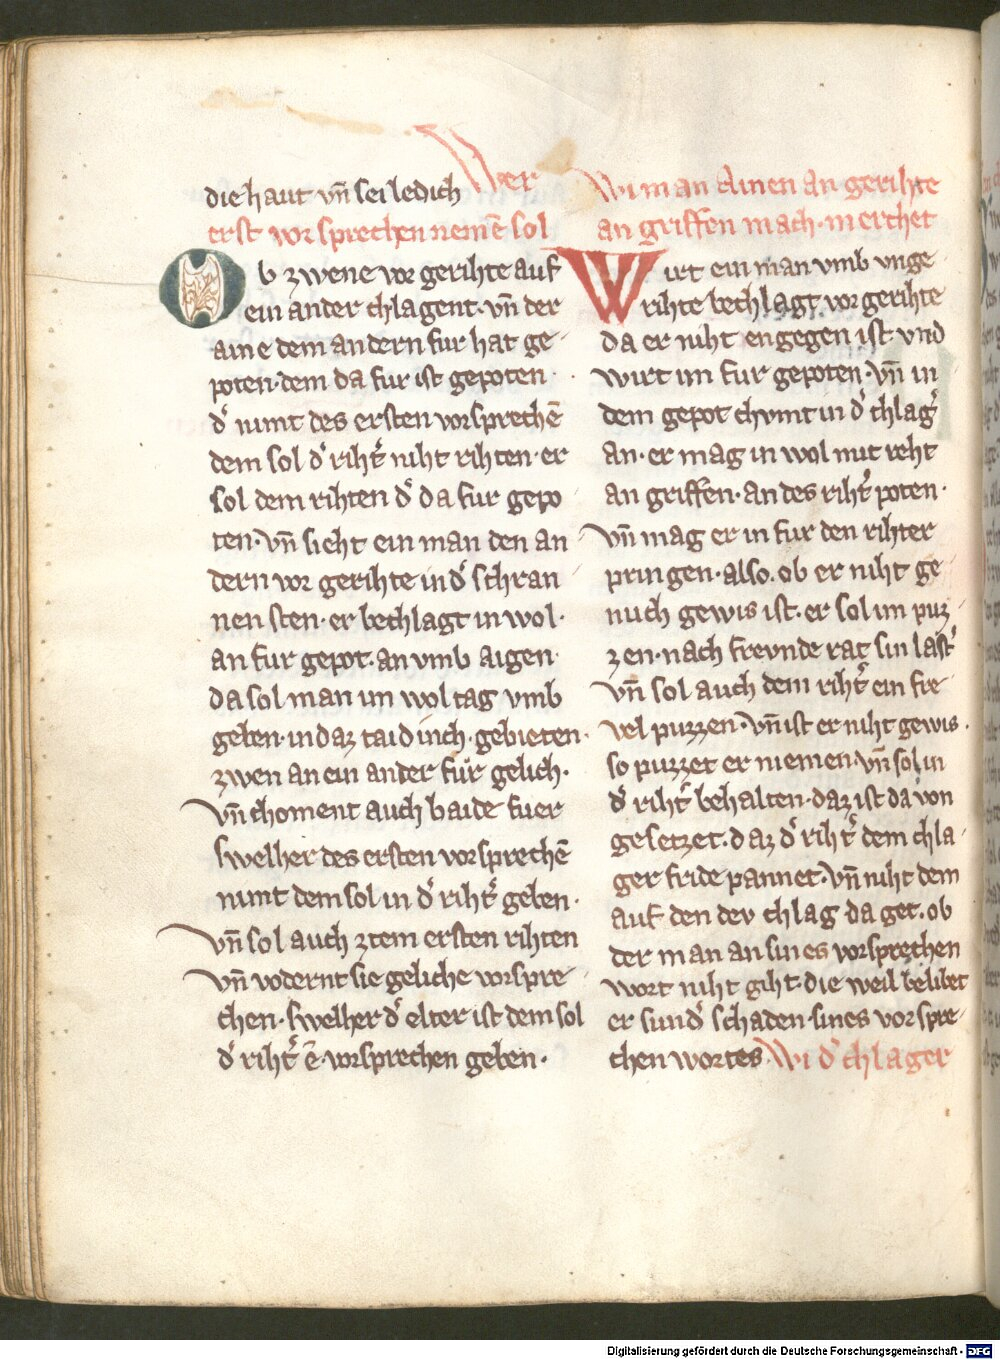 die haut vn̄ sei ledich Wer
erst vor sprechen nem̄e sol
Ob zwene vor gerihte auf
ein ander chlagent · vn̄ der
aine dem andern fur hat ge
poten · dem da fur ist gepoten ·
d͛ nimt des ersten vorsprechē
dem sol d͛ riht͛ niht rihten · er
sol dem rihten d͛ da fur gepo
ten · vn̄ sieht ein man den an
dern vor gerihte in d͛ schran
nen sten · er bechlagt in wol ·
an fur gepot · an vmb aigen ·
da sol man im wol tag vmb
geben · in daz taidinch · gebieten ·
zwen an ein ander für gelich ·
vn̄ choment auch baide fuer
swelher des ersten vorsprechē
nimt dem sol in d͛ riht͛ geben ·
vn̄ sol auch ztem ersten rihten
vn̄ vodernt sie geliche vorspre
chen · swelher d͛ elter ist dem sol
d͛ riht͛ ē vorsprechen geben ·
Wi man ainen an gerihte
an griffen mach · merchet
Wirt ein man vmb vnge
rihte bechlagt vor gerihte
da er niht engegen ist vnd
wirt im fur gepoten · vn̄ in
dem gepot chvmt in d͛ chlag͛
an · er mag in wol mit reht
an griffen · an des riht͛ poten ·
vn̄ mag er in fur den rihter
pringen · also · ob er niht ge
nuch gewis ist · er sol im puz
zen · nach frevnde rat sin last͛
vn̄ sol auch dem riht͛ ein fre
vel puzzen · vn̄ ist er niht gewis ·
so puzzet er niemen · vn̄ sol in
d͛ riht͛ behalten · daz ist da von
gesetzet · daz d͛ riht͛ dem chla
ger fride pannet · vn̄ niht dem
auf den dev chlag da get · ob
der man an sines vorsprechen
wort niht giht · die weil belibet
er sund͛ schaden · sines vorspre
chen wortes Wi d͛ chlager
Digitalisierung gefördert durch die Deutsche Forschungsgemeinschaft - DFG